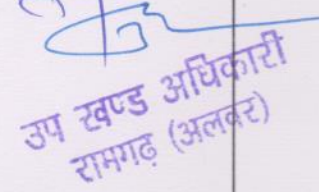 उप खण्ड अधिकारी
रामगढ़ (अलवर)